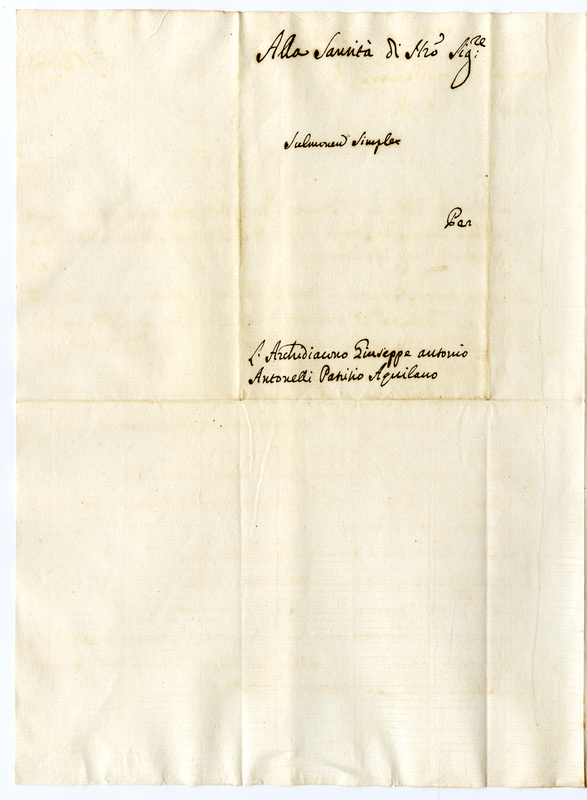 Alla Santità di Nrõ Sig:re
Sulmonen Simplex
Per
L'Archidiacono Giuseppe antonio
Antonelli Patritio Aquilano